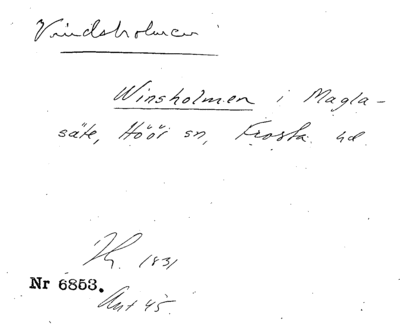 Vindsholmen
Winsholmen i Magla-
säte, Höör sn, Frosta hd
1831
Nr 6853.
Ant 45.